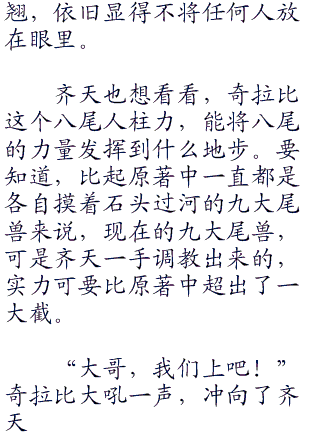 翘，依旧显得不将任何人放
在眼里。
齐天也想看看，奇拉比
这个八尾人柱力，能将八尾
的力量发挥到什么地步。要
知道，比起原著中一直都是
各自摸着石头过河的九大尾
兽来说，现在的九大尾兽，
可是齐天一手调教出来的，
实力可要比原著中超出了一
大截。
“大哥，我们上吧！”
奇拉比大吼一声，冲向了齐
天